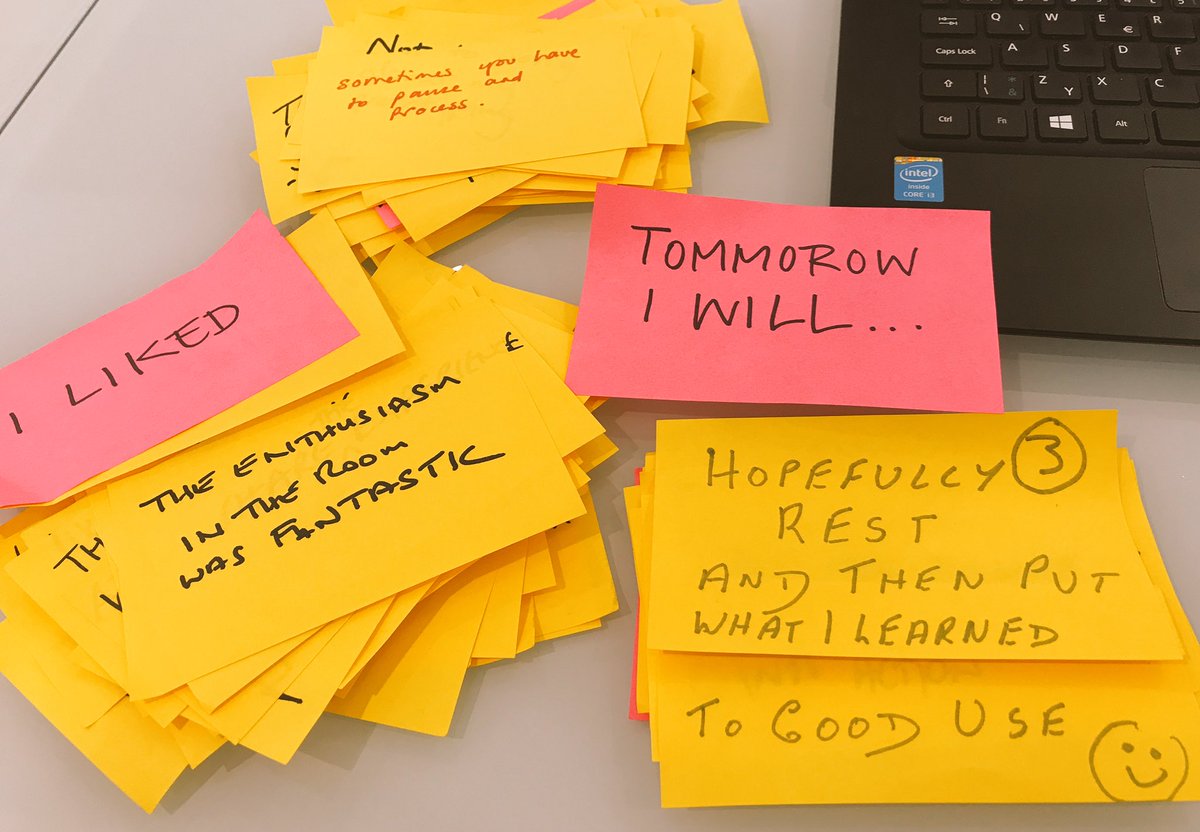 sometimes you have
to pause and
process.
I LIKED
THE ENTHUSIASM
IN THE ROOM
WAS FANTASTIC
TH
TOMMOROW
I WILL...
HOPEFULLY 3
REST
AND THEN PUT
WHAT I LEARNED
TO GOOD USE
Q W E R
€
Caps Lock A S D F
Z X C
Y
Ctrl Fn Alt
intel
inside
CORE i3